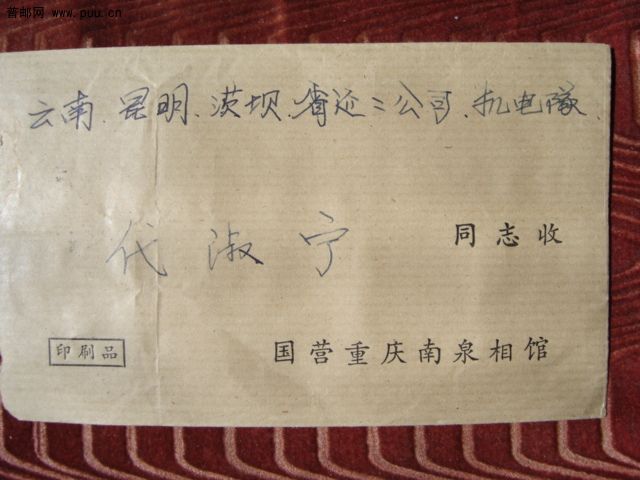 普邮网 www.puu.cn
云南、昆明、茨坝、省还二公司、机电隊、
代淑宁
同志收
印刷品
国营重庆南泉相馆